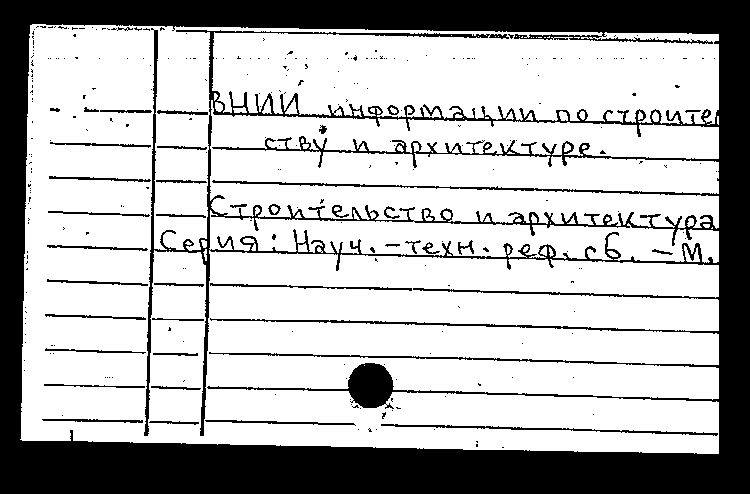 ВНИИ информации по строите
ству и архитектуре.
Строительство и архитектура
Серия: Науч.-техн. реф. сб. – М.